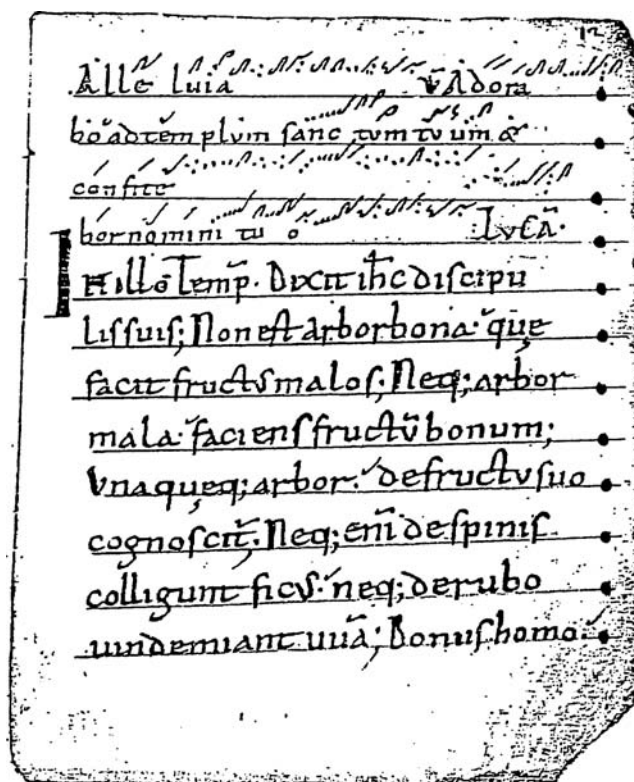 Alle luia v̄ Adora
bo ad tem plum sanc tum tu um &
confite
bor nomini tu o Lvcā.
IN illo Temp̄. Dixit ih̄c discipu
lis suis; Non est arbor bona. quę
facit fructus malos; Neq; arbor
mala. faciens fructū bonum;
Vnaquęq; arbor. de fructu suo
cognoscit̄. Neq; enī de spinis
colligunt ficus. neq; de rubo
uindemiant uuā; Bonus homo